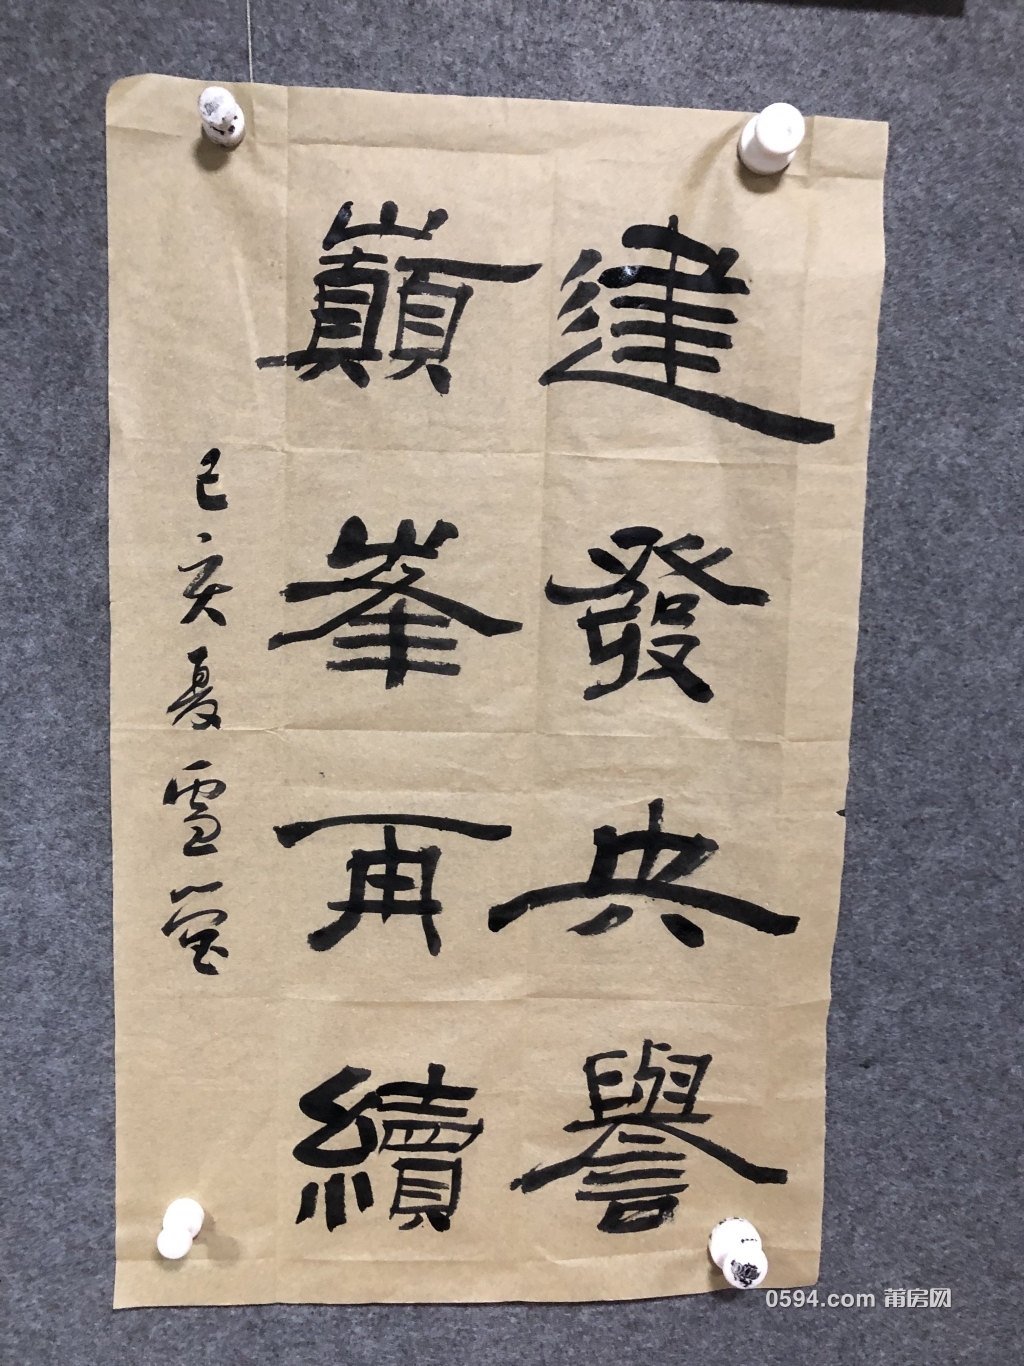 建發央譽
巔峯再續
己亥夏雪瑩
0594.com 莆房网